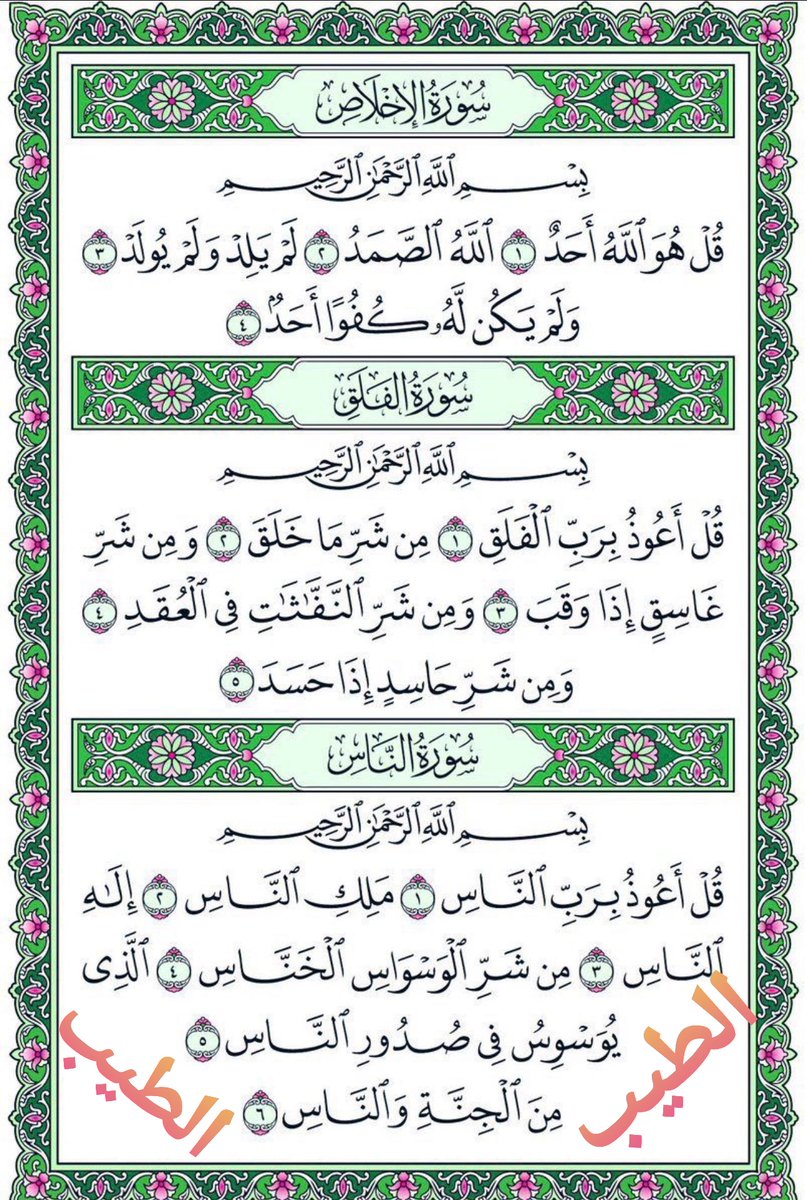 سُورَةُ الإِخْلَاصِ
بِسْمِ ٱللَّهِ ٱلرَّحْمَٰنِ ٱلرَّحِيمِ
قُلْ هُوَ ٱللَّهُ أَحَدٌ ١ ٱللَّهُ ٱلصَّمَدُ ٢ لَمْ يَلِدْ وَلَمْ يُولَدْ ٣
وَلَمْ يَكُن لَّهُۥ كُفُوًا أَحَدٌۢ ٤
سُورَةُ الفَلَقِ
بِسْمِ ٱللَّهِ ٱلرَّحْمَٰنِ ٱلرَّحِيمِ
قُلْ أَعُوذُ بِرَبِّ ٱلْفَلَقِ ١ مِن شَرِّ مَا خَلَقَ ٢ وَمِن شَرِّ
غَاسِقٍ إِذَا وَقَبَ ٣ وَمِن شَرِّ ٱلنَّفَّٰثَٰتِ فِى ٱلْعُقَدِ ٤
وَمِن شَرِّ حَاسِدٍ إِذَا حَسَدَ ٥
سُورَةُ النَّاسِ
بِسْمِ ٱللَّهِ ٱلرَّحْمَٰنِ ٱلرَّحِيمِ
قُلْ أَعُوذُ بِرَبِّ ٱلنَّاسِ ١ مَلِكِ ٱلنَّاسِ ٢ إِلَٰهِ
ٱلنَّاسِ ٣ مِن شَرِّ ٱلْوَسْوَاسِ ٱلْخَنَّاسِ ٤ ٱلَّذِى
يُوَسْوِسُ فِى صُدُورِ ٱلنَّاسِ ٥
مِنَ ٱلْجِنَّةِ وَٱلنَّاسِ ٦
الطيب
الطيب